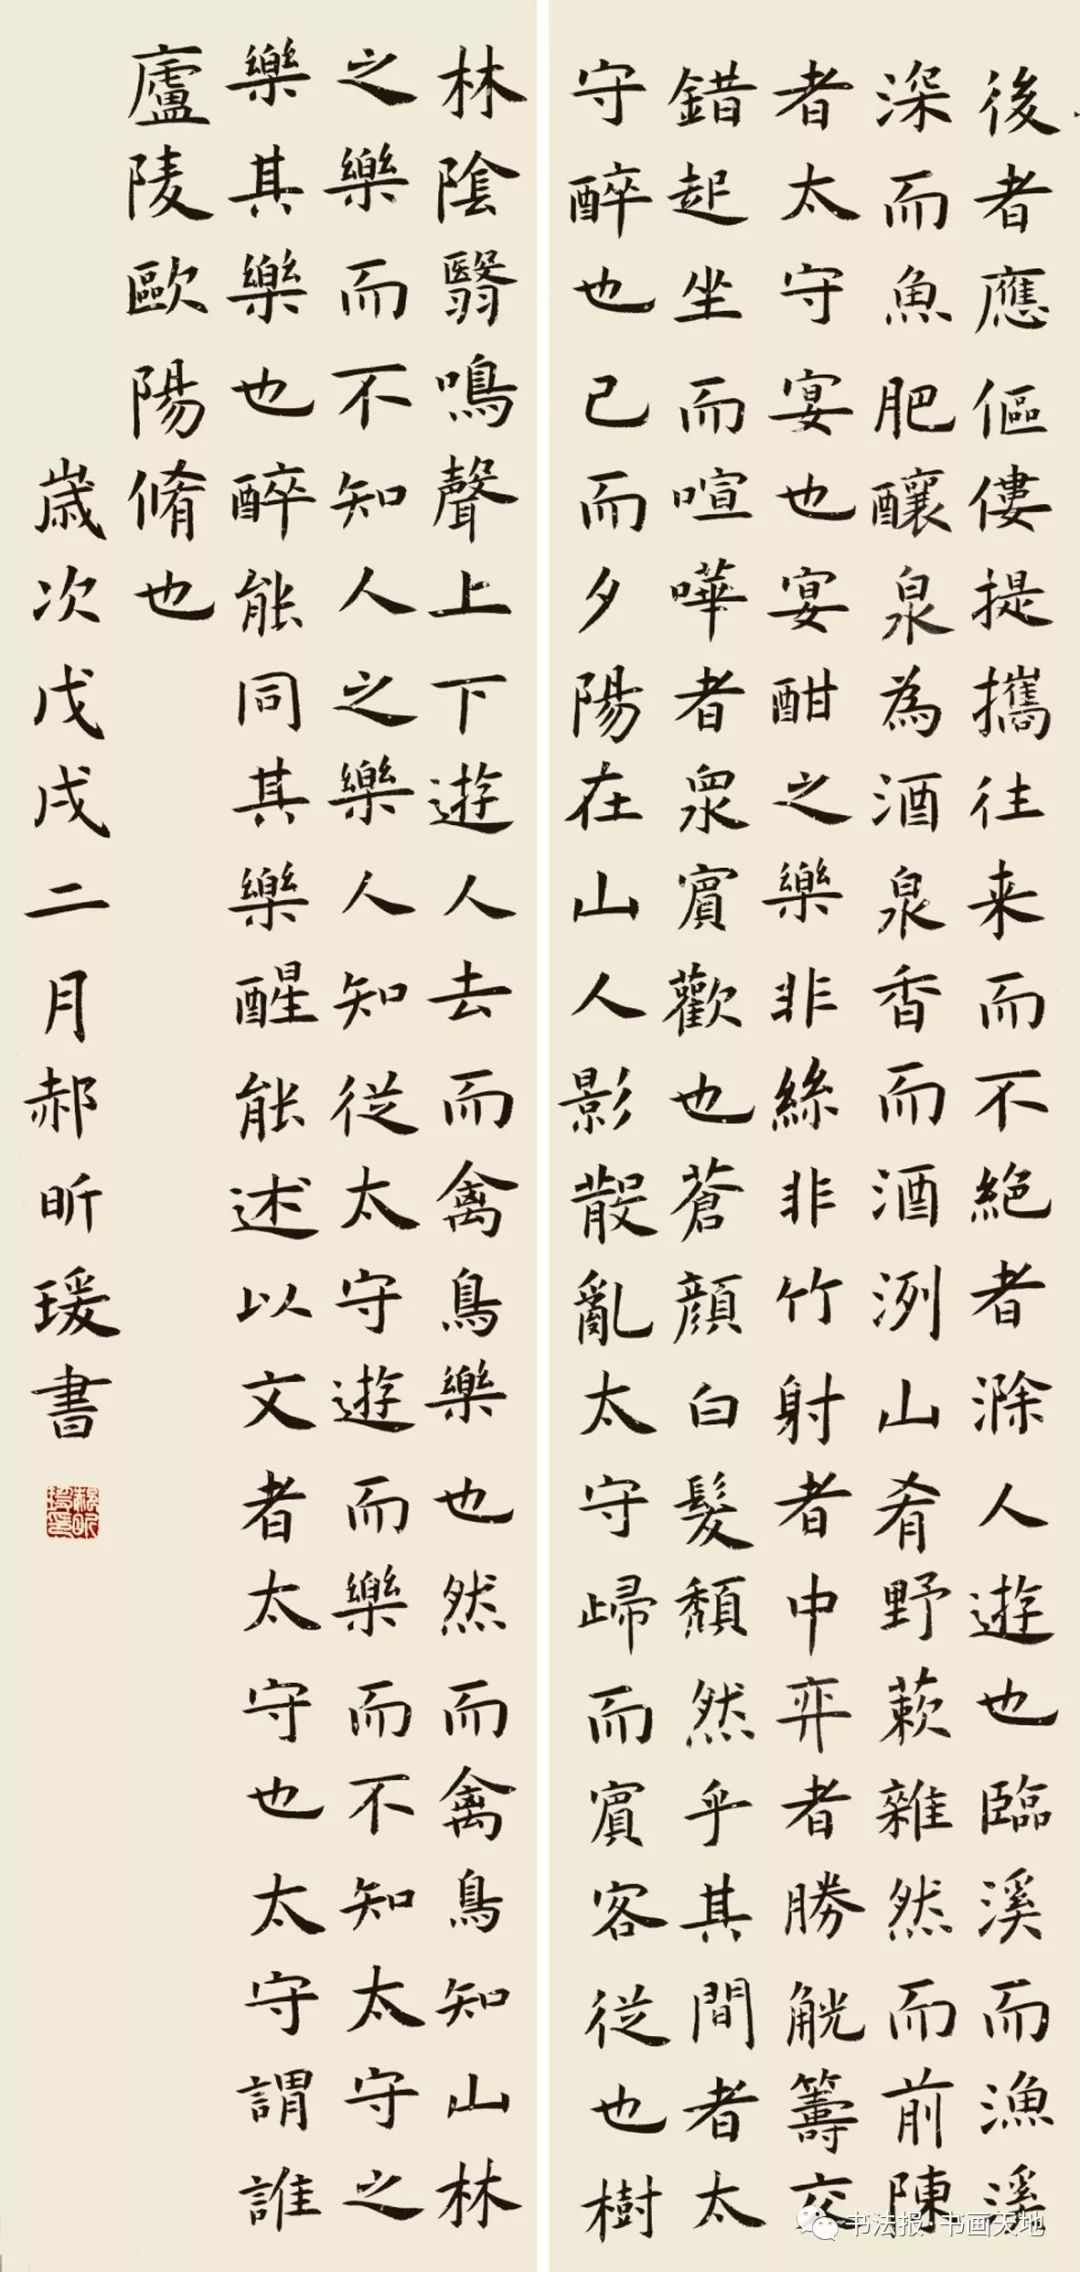 後者應傴僂提攜往来而不絕者滁人遊也臨溪而漁溪
深而魚肥釀泉為酒泉香而酒洌山肴野蔌雜然而前陳
者太守宴也宴酣之樂非絲非竹射者中弈者勝觥籌交
錯起坐而喧嘩者眾賓歡也蒼顔白髮頹然乎其間者太
守醉也已而夕陽在山人影散亂太守歸而賓客從也樹
林陰翳鳴聲上下遊人去而禽鳥樂也然而禽鳥知山林
之樂而不知人之樂人知從太守遊而樂而不知太守之
樂其樂也醉能同其樂醒能述以文者太守也太守謂誰
廬陵歐陽脩也
歲次戊戌二月郝昕瑗書
书法报·书画天地